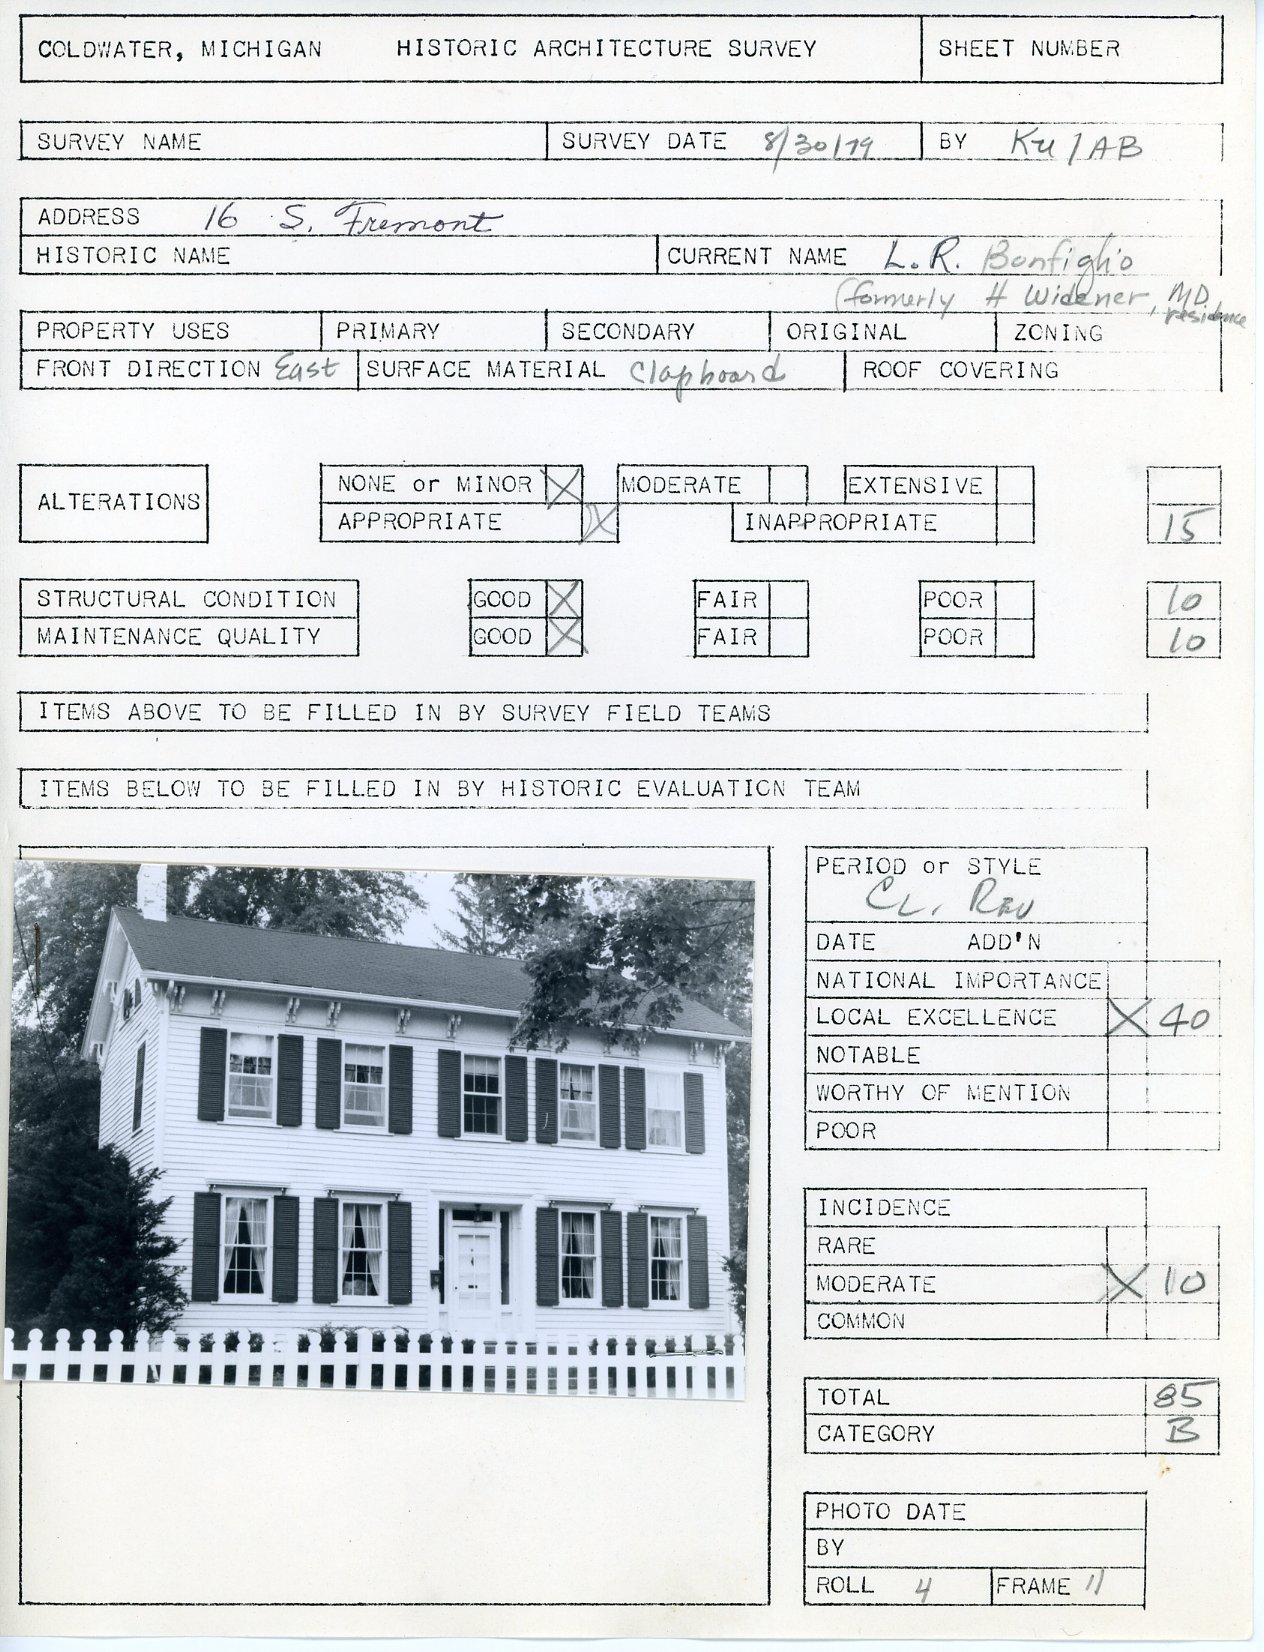 COLDWATER, MICHIGAN HISTORIC ARCHITECTURE SURVEY SHEET NUMBER
SURVEY NAME SURVEY DATE 8/30/79 BY KU/AB
ADDRESS 16 S. Fremont
HISTORIC NAME CURRENT NAME L.R. Bonfiglio
(formerly H Widener, MD
residence
PROPERTY USES PRIMARY SECONDARY ORIGINAL ZONING
FRONT DIRECTION East SURFACE MATERIAL Clapboard ROOF COVERING
ALTERATIONS NONE or MINOR X MODERATE EXTENSIVE
APPROPRIATE X INAPPROPRIATE 15
STRUCTURAL CONDITION GOOD X FAIR POOR 10
MAINTENANCE QUALITY GOOD X FAIR POOR 10
ITEMS ABOVE TO BE FILLED IN BY SURVEY FIELD TEAMS
ITEMS BELOW TO BE FILLED IN BY HISTORIC EVALUATION TEAM
PERIOD or STYLE
CL. REV
DATE ADD'N
NATIONAL IMPORTANCE
LOCAL EXCELLENCE X 40
NOTABLE
WORTHY OF MENTION
POOR
INCIDENCE
RARE
MODERATE X 10
COMMON
TOTAL 85
CATEGORY B
PHOTO DATE
BY
ROLL 4 FRAME 11